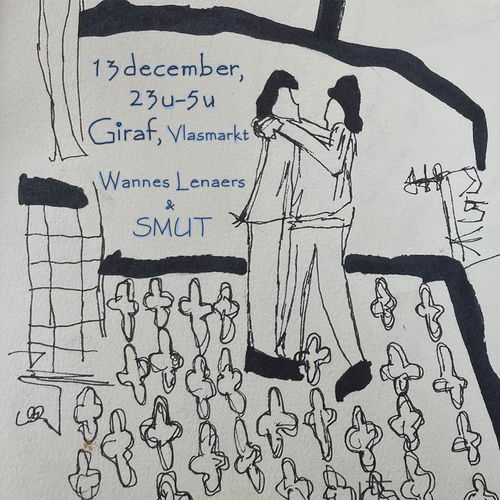 13 december,
23u-5u
Giraf, Vlasmarkt
Wannes Lenaers
&
SMUT